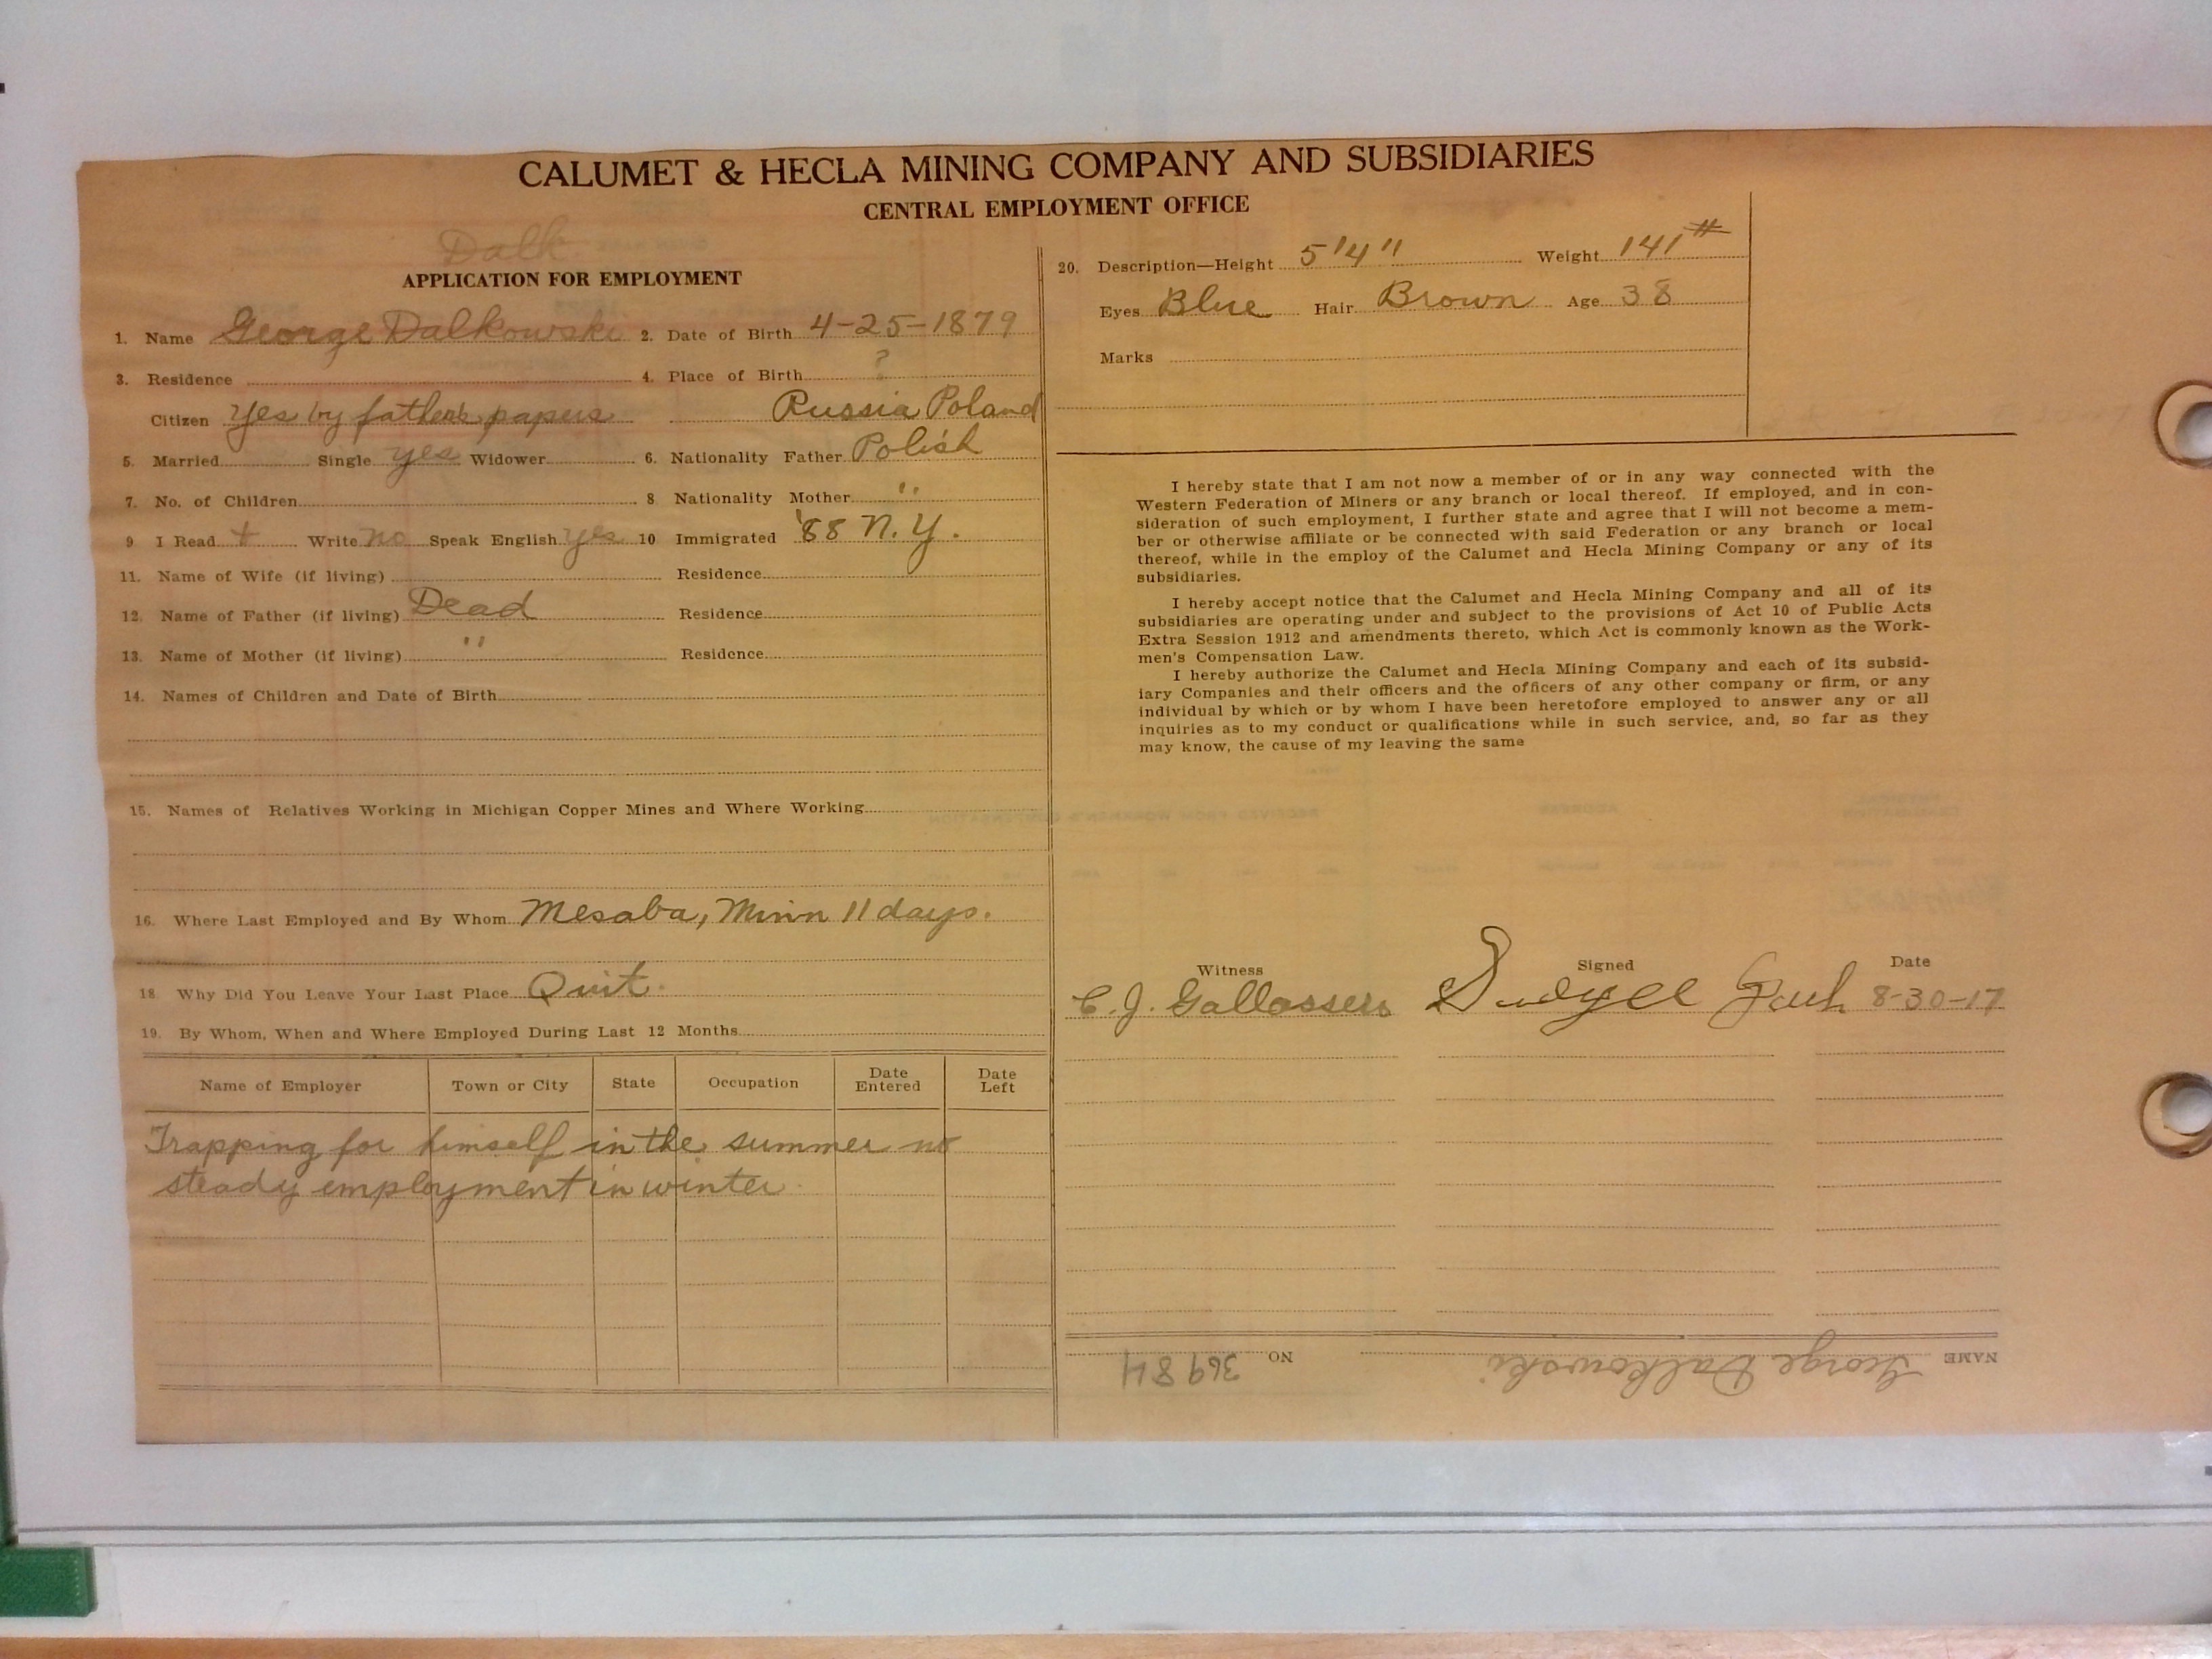 CALUMET & HECLA MINING COMPANY AND SUBSIDIARIES
CENTRAL EMPLOYMENT OFFICE
Dalk
APPLICATION FOR EMPLOYMENT
1. Name George Dalkowski 2. Date of Birth 4-25-1879
?
3. Residence 4. Place of Birth
Citizen Yes by father's papers Russia Poland
5. Married Single yes Widower 6. Nationality Father Polish
7. No. of Children 8. Nationality Mother "
9 I Read + Write no Speak English yes 10 Immigrated '88 N.Y.
11. Name of Wife (if living) Residence
12. Name of Father (if living) Dead Residence
13. Name of Mother (if living) " Residence
14. Names of Children and Date of Birth
15. Names of Relatives Working in Michigan Copper Mines and Where Working
16. Where Last Employed and By Whom Mesaba, Minn 11 days.
18 Why Did You Leave Your Last Place Quit.
19. By Whom, When and Where Employed During Last 12 Months
Name of Employer Town or City State Occupation Date Entered Date Left
Trapping for himself in the summer no
steady employment in winter.
20. Description—Height 5'4" Weight 141#
Eyes Blue Hair Brown Age 38
Marks
I hereby state that I am not now a member of or in any way connected with the
Western Federation of Miners or any branch or local thereof. If employed, and in con-
sideration of such employment, I further state and agree that I will not become a mem-
ber or otherwise affiliate or be connected with said Federation or any branch or local
thereof, while in the employ of the Calumet and Hecla Mining Company or any of its
subsidiaries.
I hereby accept notice that the Calumet and Hecla Mining Company and all of its
subsidiaries are operating under and subject to the provisions of Act 10 of Public Acts
Extra Session 1912 and amendments thereto, which Act is commonly known as the Work-
men's Compensation Law.
I hereby authorize the Calumet and Hecla Mining Company and each of its subsid-
iary Companies and their officers and the officers of any other company or firm, or any
individual by which or by whom I have been heretofore employed to answer any or all
inquiries as to my conduct or qualifications while in such service, and, so far as they
may know, the cause of my leaving the same
Witness Signed Date
C. J. 8-30-17
NAME George Dalkowski NO 36984